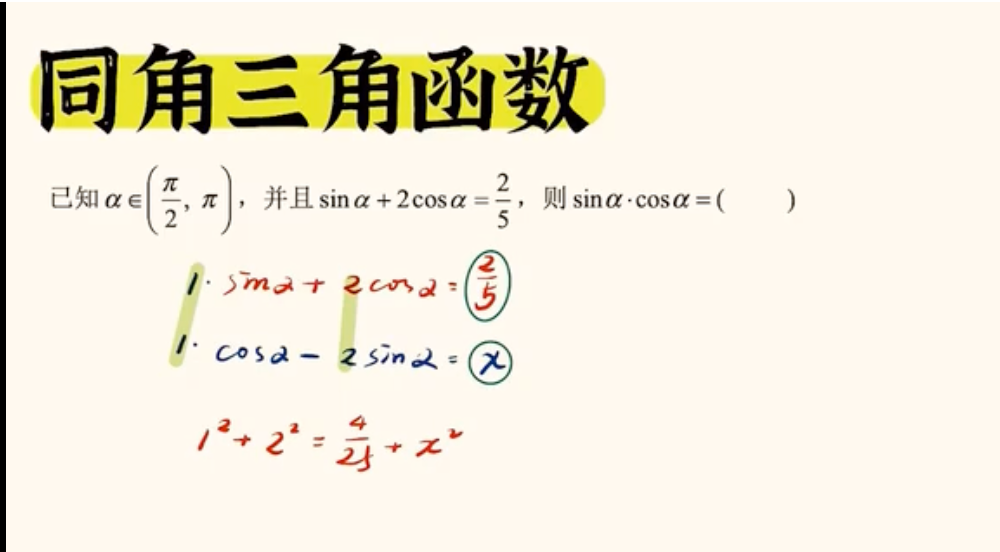 同角三角函数
已知 α∈(π/2, π)，并且 sin α + 2cos α = 2/5，则 sin α · cos α = (  )
1· sinα + 2cosα = 2/5
1· cosα − 2sinα = x
1² + 2² = 4/25 + x²